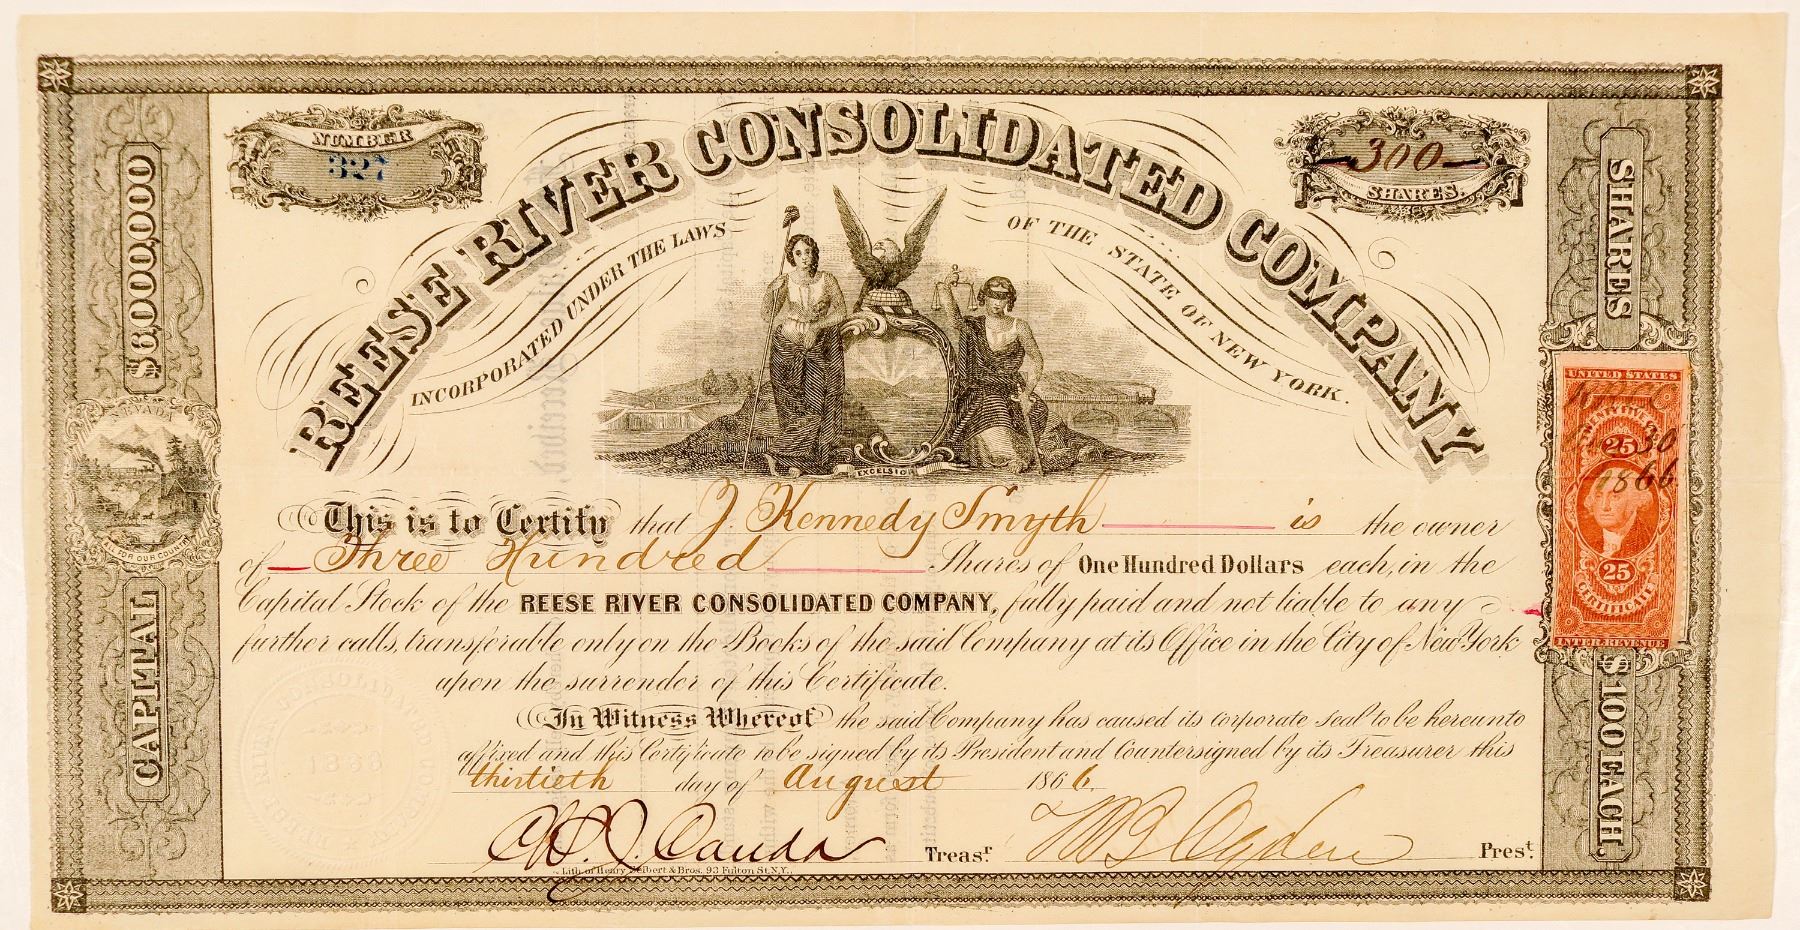 NUMBER
327
300
SHARES.
REESE RIVER CONSOLIDATED COMPANY
INCORPORATED UNDER THE LAWS OF THE STATE OF NEW YORK.
EXCELSIOR
$6,000,000
NEVADA
ALL FOR OUR COUNTRY
CAPITAL
SHARES
$100 EACH.
UNITED STATES
TWENTY FIVE CTS
25
30
1866
25
CERTIFICATE
INTER. REVENUE
This is to Certify that J. Kennedy Smyth is the owner
of Three Hundred Shares of One Hundred Dollars each, in the
Capital Stock of the REESE RIVER CONSOLIDATED COMPANY, fully paid and not liable to any
further calls, transferable only on the Books of the said Company at its Office in the City of New York
upon the surrender of this Certificate.
In Witness Whereof the said Company has caused its corporate seal to be hereunto
affixed and this Certificate to be signed by its President and Countersigned by its Treasurer this
thirtieth day of August 1866.
Treasr.
Ogden Prest.
Lith. of Henry Seibert & Bros. 93 Fulton St. N.Y.
REESE RIVER CONSOLIDATED COMPANY